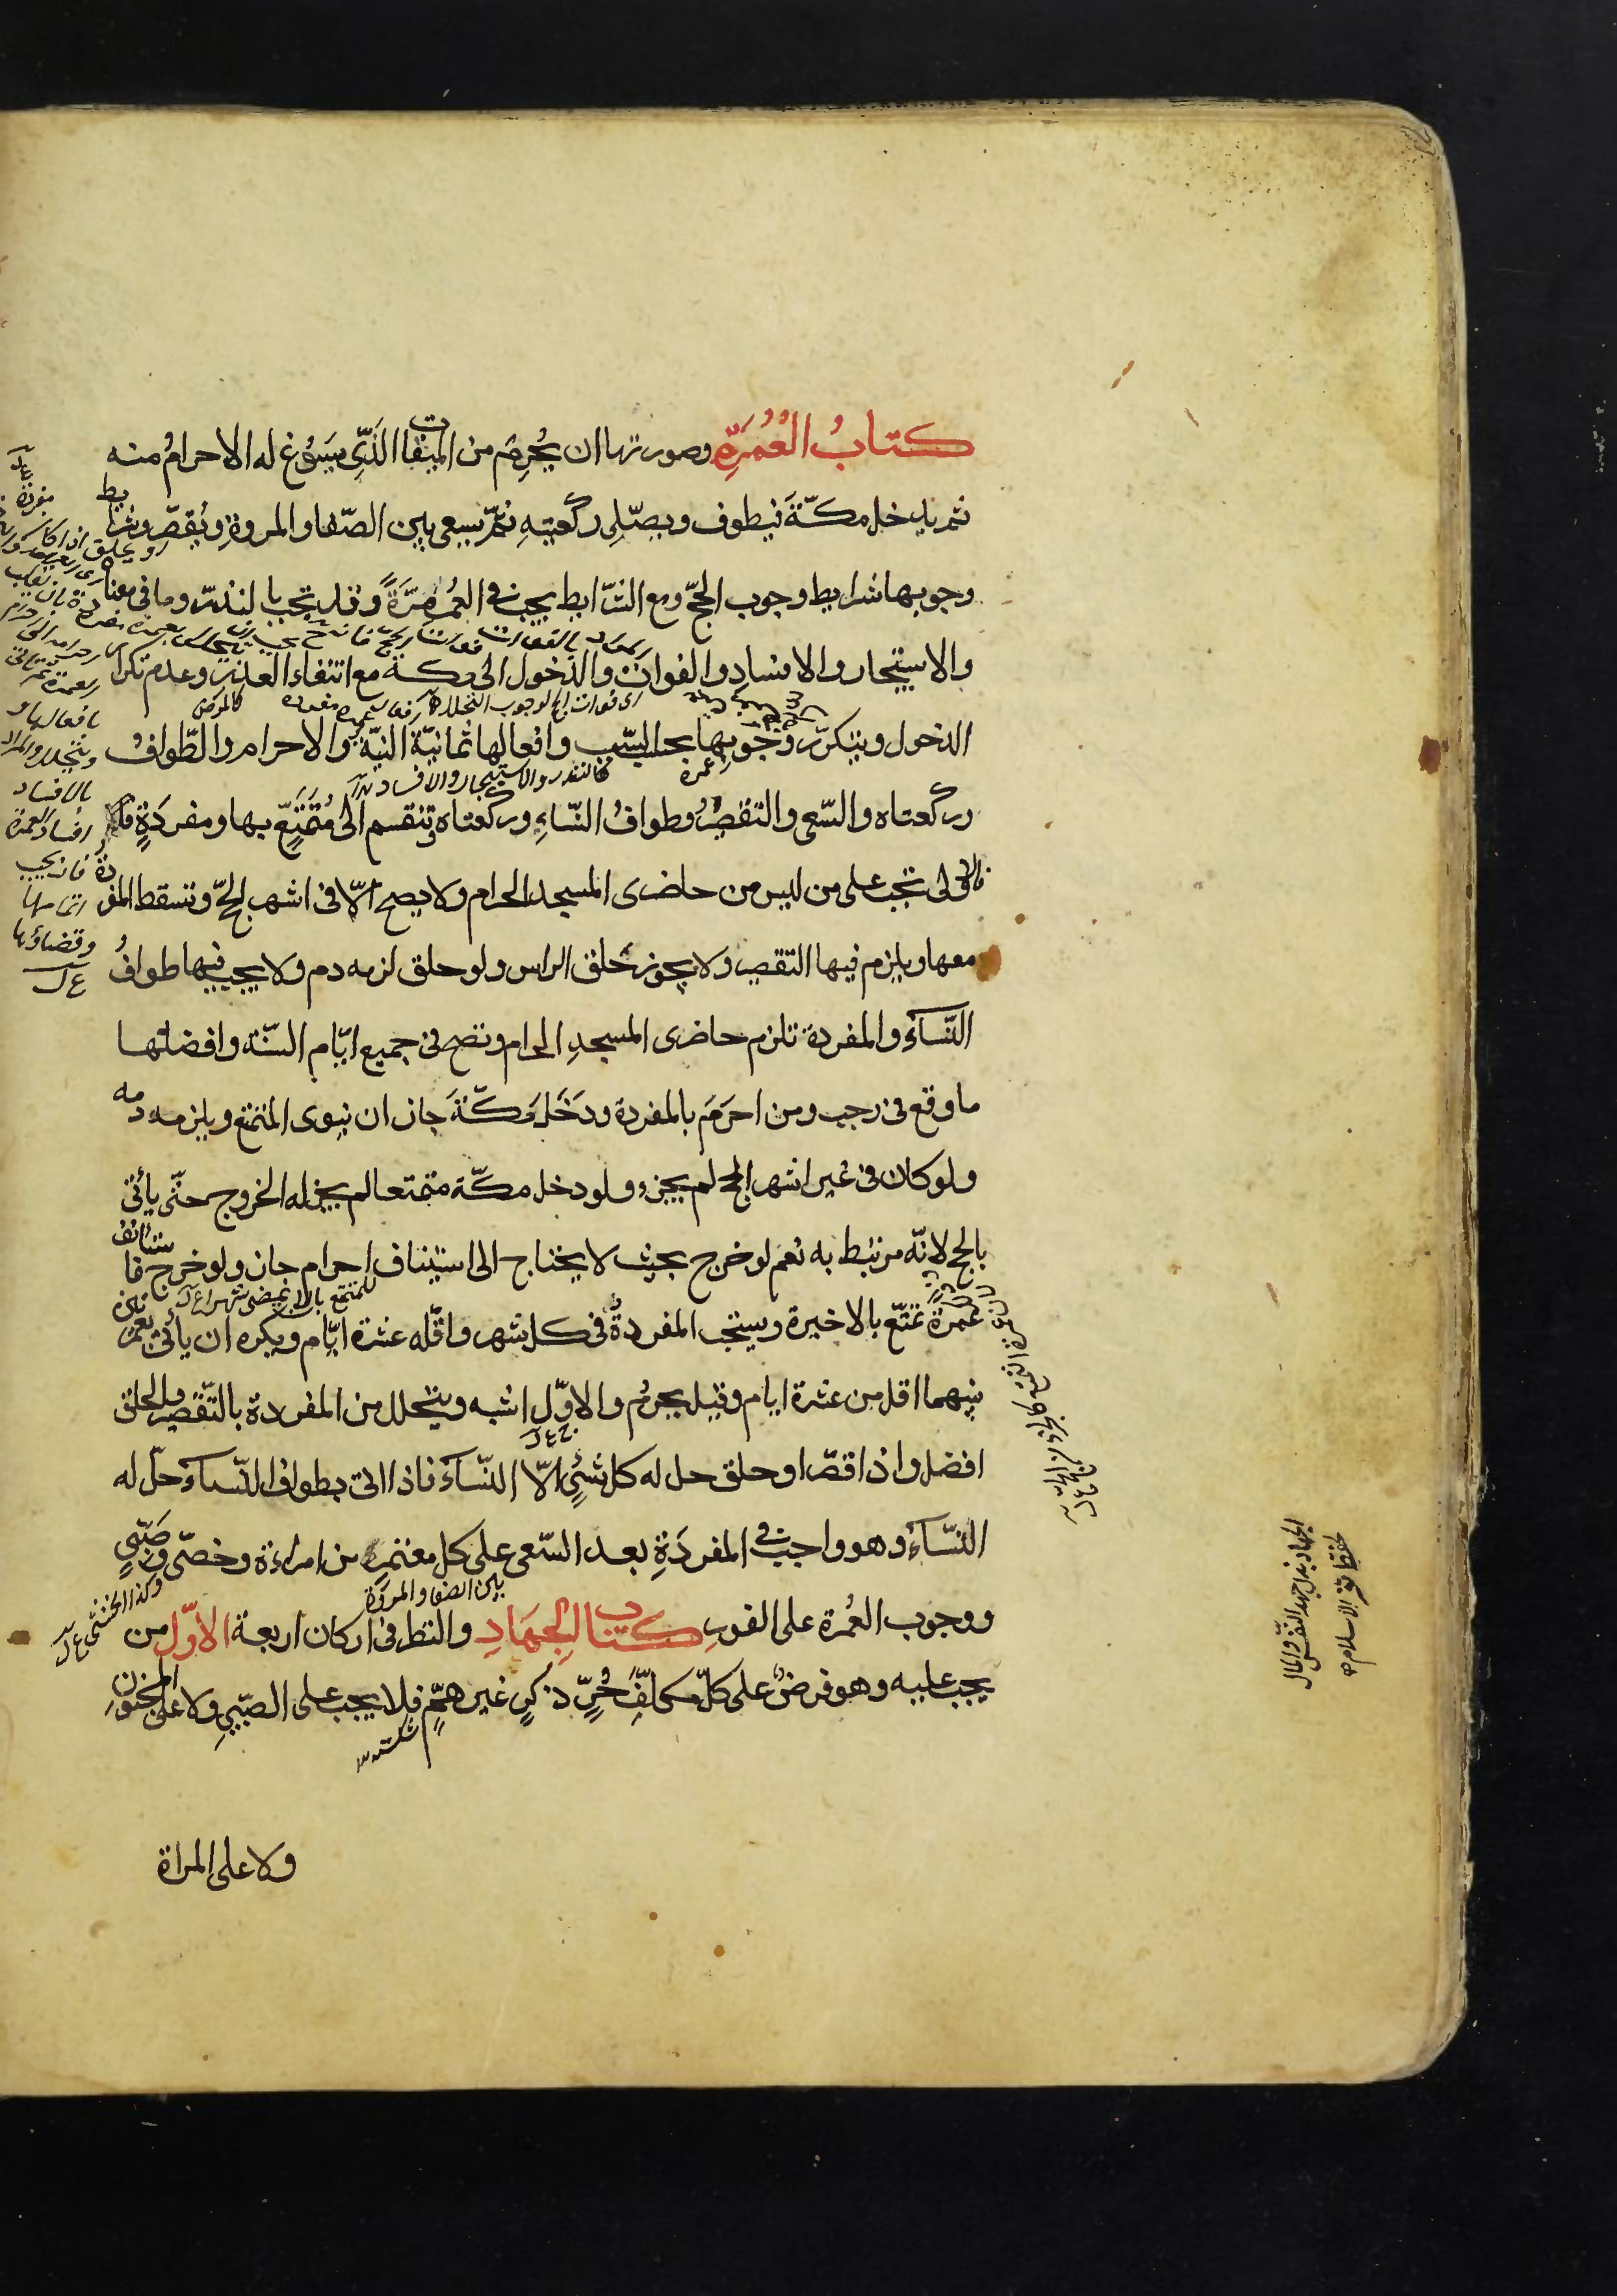 كتابُ الْعُمُرَةِ وصورتها ان يُحرِمَ من الميقات الَّذِى يَسَوُغ له الاحرامُ منه
ثم يدخل مكّةَ فيطوف ويصّلِى ركعتيهِ ثمّ يسعى بين الصّفا والمروةِ ويُقصّر وشرايط
وجوبها شرايط وجوب الحجّ ومع الشّرايط يجب فى العُمُر مَرّةً وقد يجب بالنذر وما فى معناه
والاستيجار والافساد والفوات والدّخول الى مكة مع انتفاء العذر وعدم تكرار
الدخول ويتكرّر وجوبها بحسب السّبب وافعالها ثمانيّة النيّة والاحرام والطّوافُ
وركعتاه والسّعى والتقصيرُ وطوافُ النّساءِ وركعتاه وتنقسم الى مُتَمَتّعٍ بها ومفردَةٍ
فالاولى تجب على من ليس من حاضرى المسجد الحرام ولا يصح الّا فى اشهر الحجّ وتسقط المفردة
معها ويلزم فيها التقصير ولا يجوز حَلق الراس ولو حلق لزمه دم ولا يجب فيها طوافُ
النّسآءِ والمفردة تلزم حاضرى المسجدِ الحرام وتصح فى جميع ايّام السّنة وافضلها
ما وقع فى رجب ومن احرَمَ بالمفردة ودَخَلَ مَكّةَ جاز ان ينوى التمتع ويلزمه دمه
ولو كان فى غير اشهر الحج لم يجز ولو دخل مكّة متمتعا لم يجز له الخروج حتّى يأتى
بالحج لانّه مرتبط به نعم لو خرج بحيث لا يحتاج الى استيناف احرام جاز ولو خرج فاستأنف
عمرة تمتّع بالاخيرة ويستحب المفردةُ فى كل شهر واقّله عشرة ايّام ويكره ان يأتى بعمرتين
بينهما اقل من عشرة ايام وقيل يحرُم والاوّل اشبه ويتحلل من المفردة بالتّقصير والحلق
افضل واذا قصّر او حلق حل له كل شئٍ الّا النّسآءَ فاذا اتى بطواف النّسآء حلّ له
النّسآءُ وهو واجب فى المفردَةِ بعد السّعى على كل معتمرٍ من امراءة وخصّى وصَبّىٍ
ووجوب العُمرة على الفورِ كتاب الْجِهَادِ والنظر فى اركان اربعة الاوّل من
يجب عليه وهو فرضٌ على كلّ مكلّفٍ حُرٍّ ذكرٍ غير هِمٍّ فلا يجب على الصّبّىِ ولا على المجنون
ولا على المراة
او يحلق اذا كان
مفردة
كالمرض
عمرة
كالنذر والاستيجار والافساد
بافعالها و
يتحلل والمراد
بالافساد
افساد العمرة
فانه يجب
اتمامها
وقضاؤها
ع ل
بين الصفا والمروة
وكذا الخنثى ع ل
الجهاد بذل جهد النفس والمال